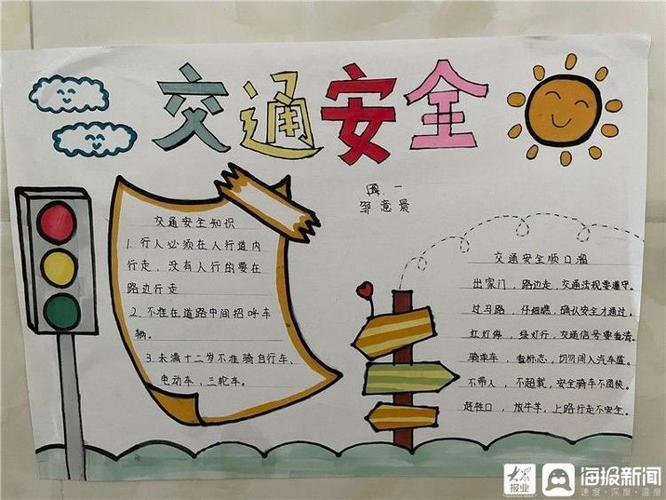 交通安全
四一
邹意晨
交通安全知识
1.行人必须在人行道内
行走，没有人行的要在
路边行走
2.不准在道路中间招呼车
辆。
3.未满十二岁不准骑自行车、
电动车，三轮车。
交通安全顺口溜
出家门，路边走，交通法规要遵守。
过马路，仔细瞧，确认安全才通过。
红灯停，绿灯行，交通信号要看清。
骑乘车，看标志，切勿闯入汽车道。
不带人，不超载，安全骑车不图快。
赶牲口，放牛羊，上路行走不安全。
大众报业
海报新闻
速度·深度·温度